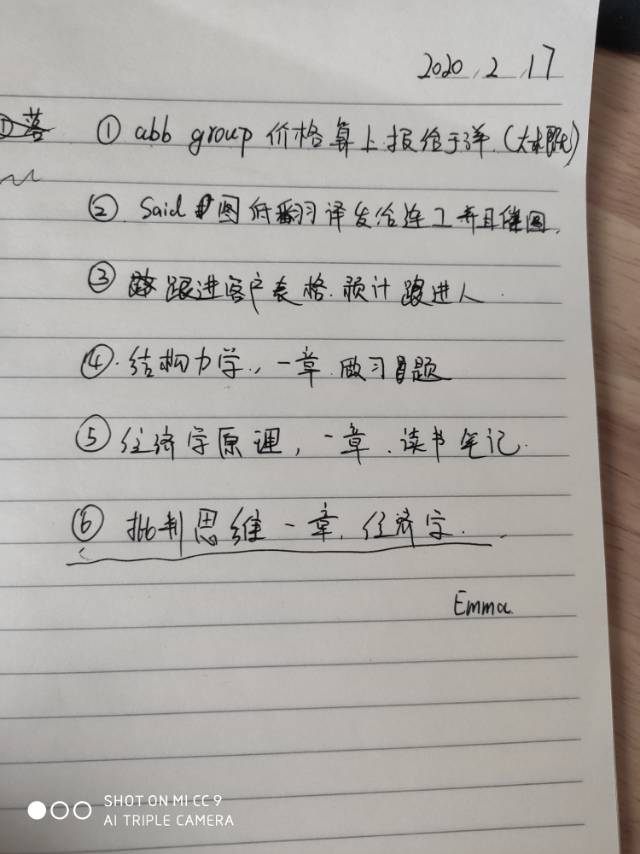 2020.2.17
① 落 ① abb group 价格算上报给于洋.(太
② Said 图纸翻译发给连工并且催图.
③ 跟进客户表格.预计跟进人.
④.结构力学.,一章.做习题
⑤ 经济学原理,一章.读书笔记.
⑥ 批判思维一章.经济学.
Emma.
SHOT ON MI CC 9
AI TRIPLE CAMERA